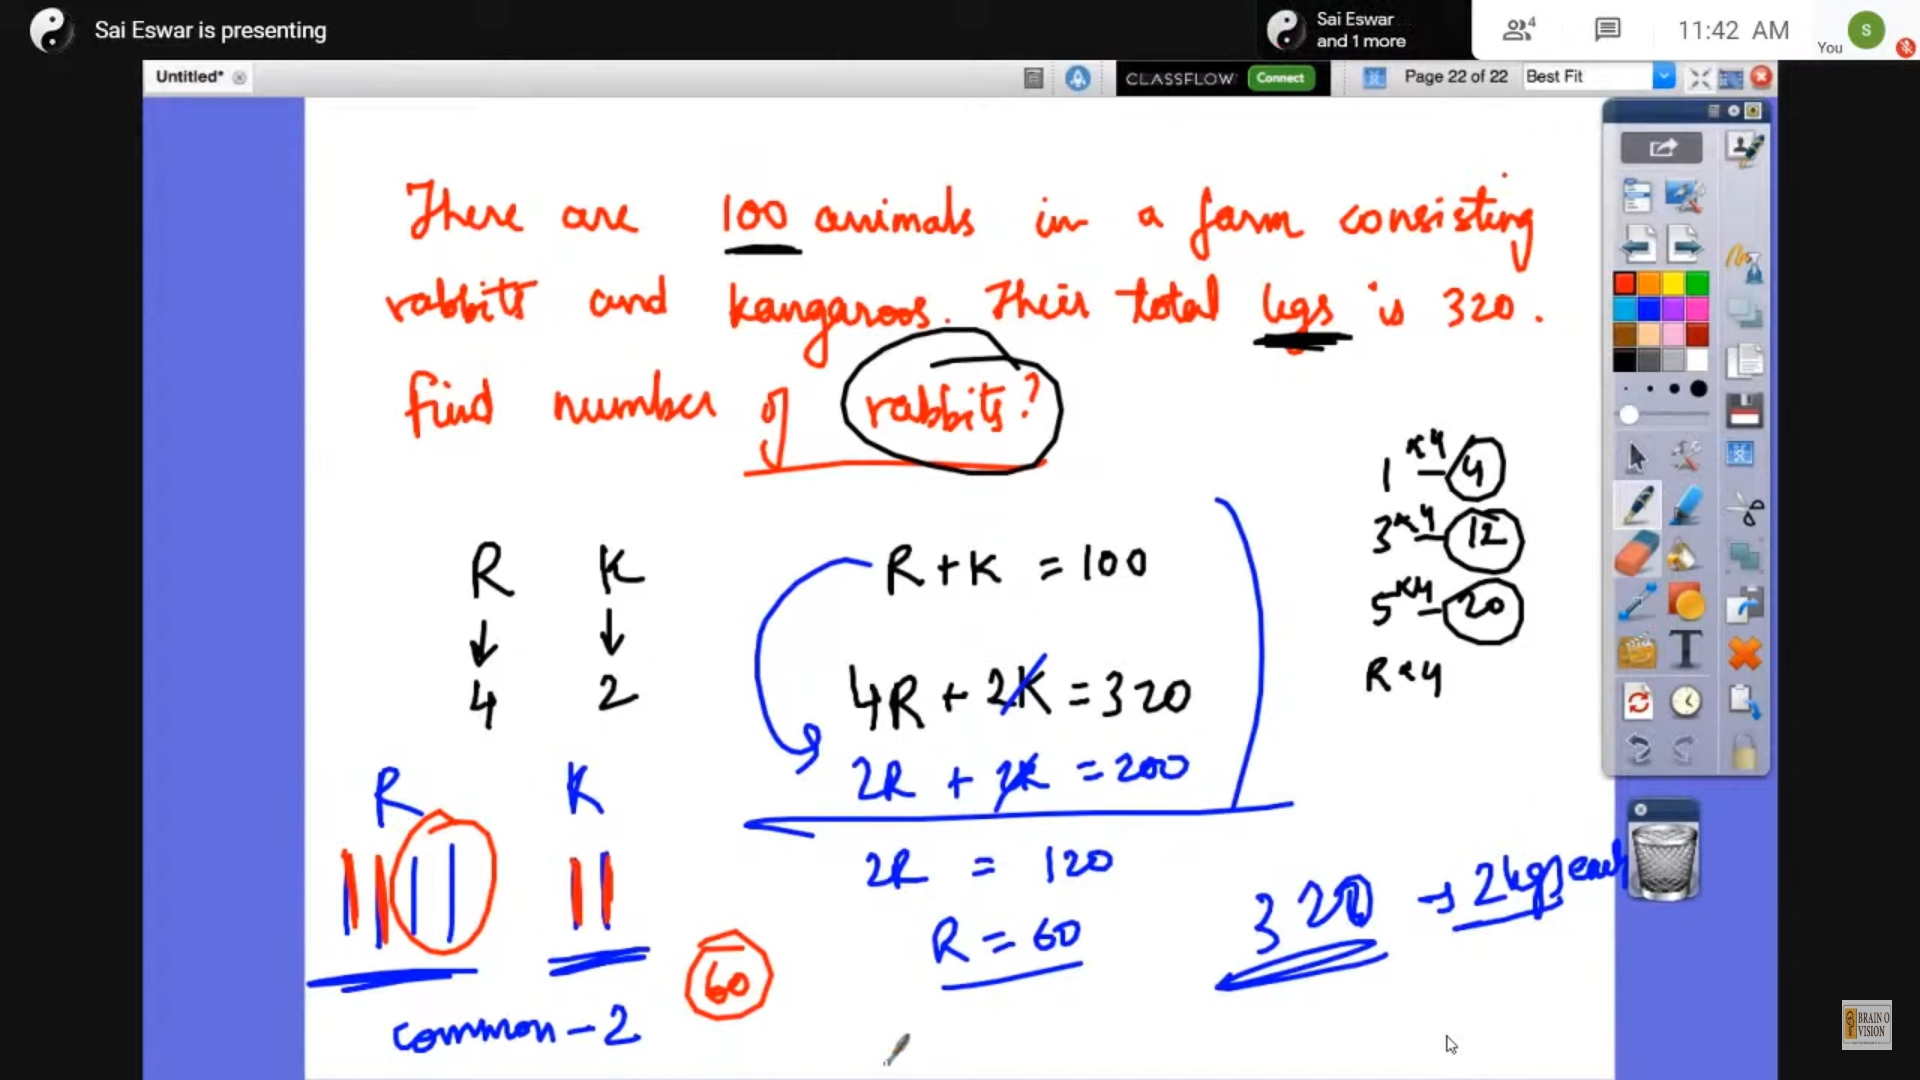 Sai Eswar is presenting
Sai Eswar
and 1 more
4
11:42 AM
You
S
Untitled*
CLASSFLOW
Connect
Page 22 of 22
Best Fit
There are 100 animals in a farm consisting
rabbits and kangaroos. Their total legs is 320.
find number of rabbits?
1 x4 - 4
3 x4 - 12
5 x4 - 20
R x 4
R K
4 2
R + K = 100
4R + 2K = 320
2R + 2K = 200
2R = 120
R = 60
R K
common - 2
60
320 → 2 legs each
T
BRAIN O
VISION